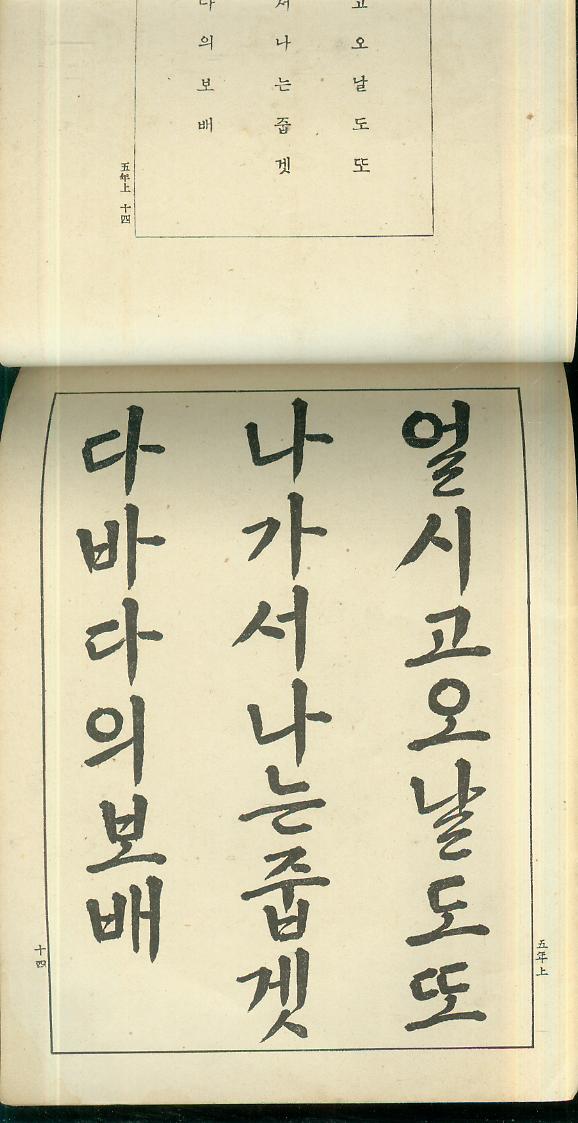 고오날도또
서나는줍겟
다의보배
五年上 十四
五年上
얼시고오날도또
나가서나는줍겟
다바다의보배
十四